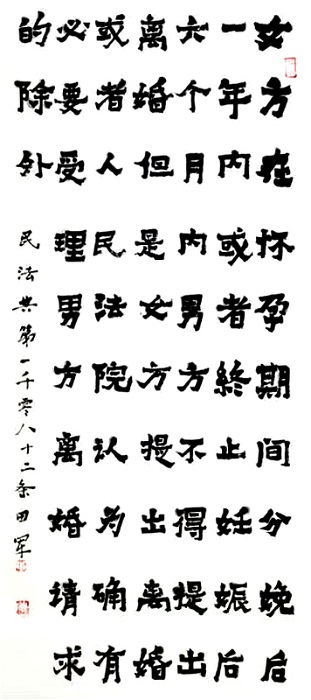 女方在怀孕期间分娩后
一年内或者終止妊娠后
六个月内男方不得提出
离婚但是女方提出离婚
或者人民法院认为确有
必要受理男方离婚请求
的除外
民法典第一千零八十二条田軍